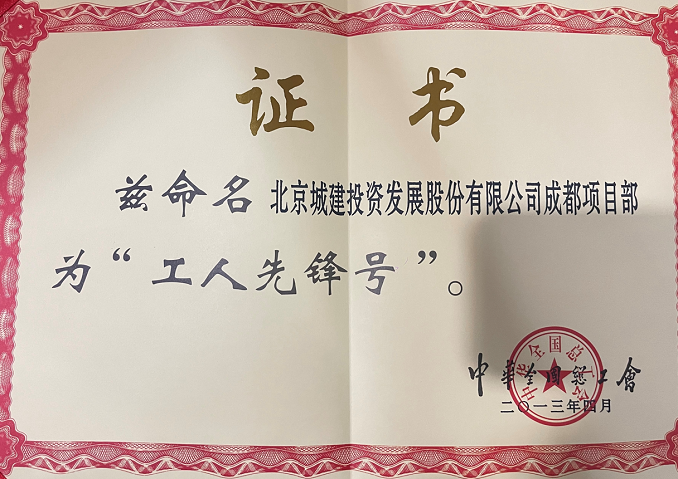 证书
兹命名 北京城建投资发展股份有限公司成都项目部
为“工人先锋号”。
中华全国总工会
中華全國總工會
二〇一三年四月